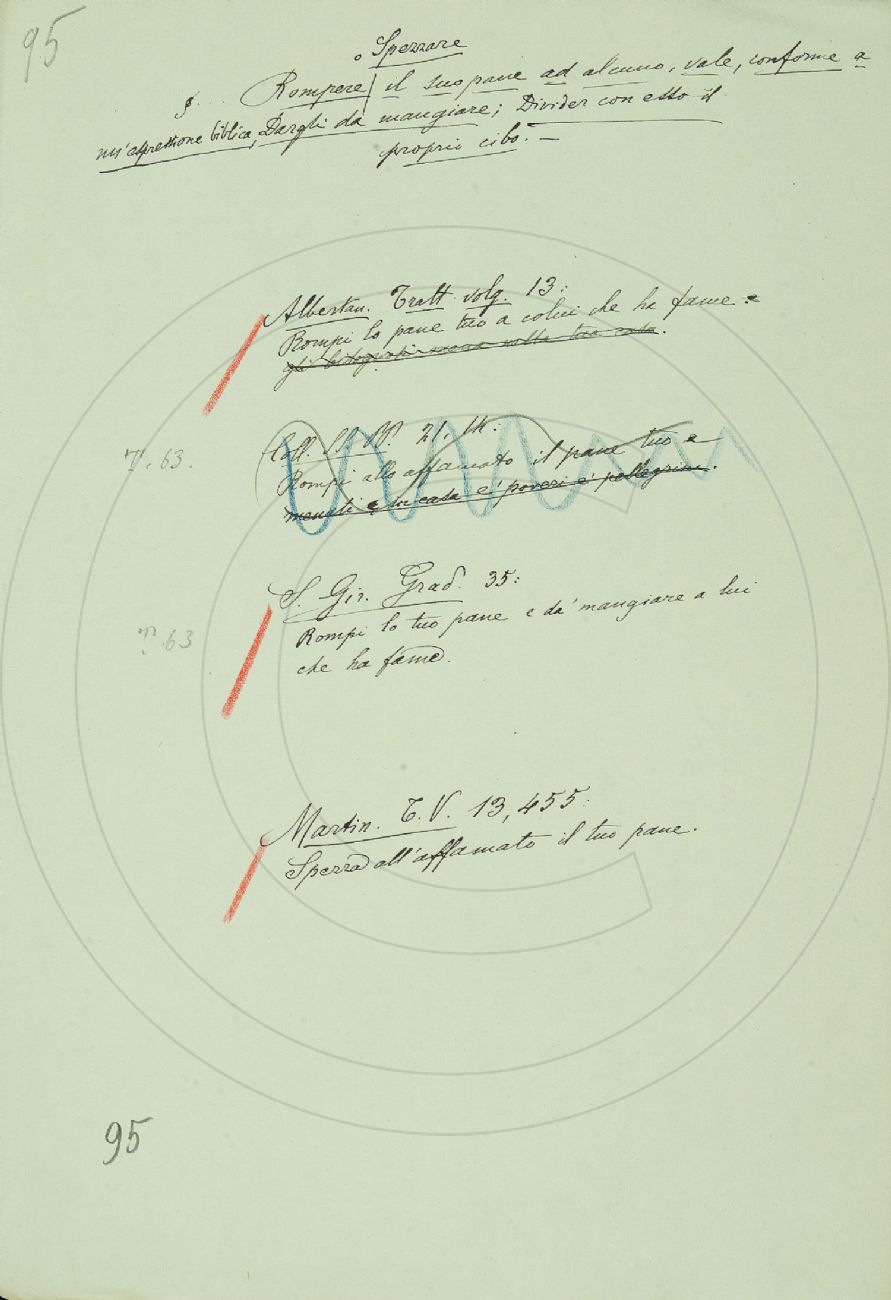 95
o Spezzare
§. ... Rompere il suo pane ad alcuno, vale, conforme a
un'espressione biblica, Dargli da mangiare; Divider con esso il
proprio cibo. –
Albertan. Tratt. volg. 13:
Rompi lo pane tuo a colui che ha fame e
gli bisognosi mena nella tua casa.
T. 63.
Coll. SS. PP. 21, 14:
Rompi allo affamato il pane tuo e
menati in casa e' poveri e' pellegrini.
S. Gir. Grad. 35:
Rompi lo tuo pane e da' mangiare a lui
T. 63
che ha fame.
Martin. T. V. 13, 455:
Spezza all'affamato il tuo pane.
95